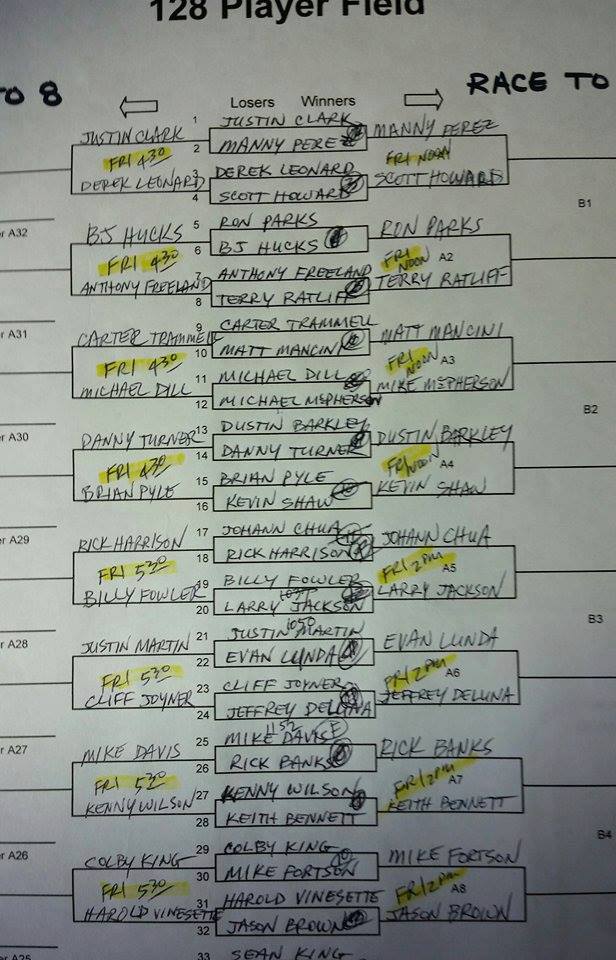 128 Player Field
TO 8
RACE TO
Losers Winners
1 JUSTIN CLARK
JUSTIN CLARK MANNY PEREZ
2 MANNY PEREZ
FRI 4:30 FRI NOON
3 DEREK LEONARD
DEREK LEONARD SCOTT HOWARD
4 SCOTT HOWARD
B1
r A32
5 RON PARKS
BJ HUCKS RON PARKS
6 BJ HUCKS
FRI 4:30 FRI NOON A2
7 ANTHONY FREELAND
ANTHONY FREELAND TERRY RATLIFF
8 TERRY RATLIFF
9 CARTER TRAMMELL
r A31
CARTER TRAMMELL MATT MANCINI
10 MATT MANCINI
FRI 4:30 FRI NOON A3
11 MICHAEL DILL
MICHAEL DILL MIKE MCPHERSON
12 MICHAEL MCPHERSON
B2
13 DUSTIN BARKLEY
r A30
DANNY TURNER DUSTIN BARKLEY
14 DANNY TURNER
FRI 4:30 FRI NOON A4
15 BRIAN PYLE
BRIAN PYLE KEVIN SHAW
16 KEVIN SHAW
17 JOHANN CHUA
r A29
RICK HARRISON JOHANN CHUA
18 RICK HARRISON
FRI 5:30 FRI 2PM A5
19 BILLY FOWLER
BILLY FOWLER LARRY JACKSON
20 LARRY JACKSON
B3
21 JUSTIN MARTIN
r A28
JUSTIN MARTIN EVAN LUNDA
22 EVAN LUNDA
FRI 5:30 FRI 2PM A6
23 CLIFF JOYNER
CLIFF JOYNER JEFFREY DELUNA
24 JEFFREY DELUNA
1152
25 MIKE DAVIS
r A27
MIKE DAVIS RICK BANKS
26 RICK BANKS
FRI 5:30 FRI 2PM A7
27 KENNY WILSON
KENNY WILSON KEITH BENNETT
28 KEITH BENNETT
B4
29 COLBY KING
r A26
COLBY KING MIKE FORTSON
30 MIKE FORTSON
FRI 5:30 FRI 2PM A8
31 HAROLD VINESETTE
HAROLD VINESETTE JASON BROWN
32 JASON BROWN
33 SEAN KING
r A25